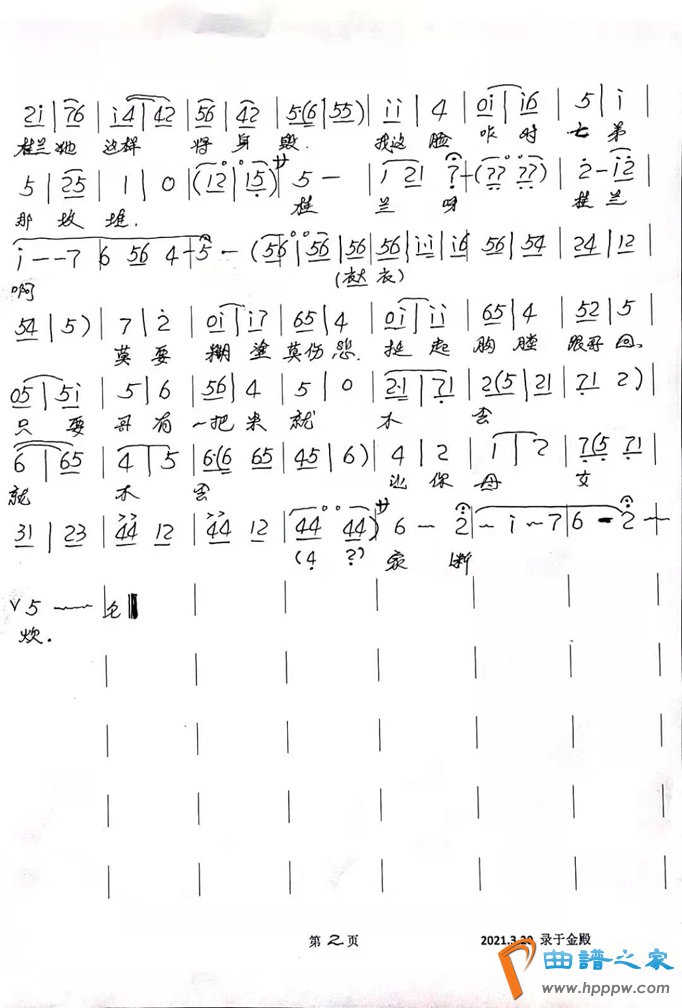 2i | 76 | i4 | 42 | 56 | 42 | 5·(6 | 55) | ii | 4 | 0i | i6 | 5 | i |
桂兰她 这样 将 身 毁. 我这 脸 咋 对 七 弟
5 | 25 | 1 | 0 | (12 | 15) | 5 — | 1 21 7 — (77 77) | 2 – i2 |
那 坟 堆. 桂 兰 呀 桂 兰
i — — 7 | 6 56 4 – 5 — (56 | 56 | 56 | 56 | ii | i6 | 56 | 54 | 24 | 12 |
啊
54 | 5) | 7 | 2 | 0i | i7 | 65 | 4 | 0i | ii | 65 | 4 | 52 | 5 |
莫 要 糊 塗 莫伤 悲. 挺 起 胸 膛 跟哥 回.
05 | 5i | 5 | 6 | 56 | 4 | 5 | 0 | 2·1 | 71 | 2(5 | 21 | 71 2) |
只 要 哥 有 一把 米 就 不 会
6 | 65 | 4 | 5 | 6·(6 65 | 45 | 6) | 4 | 2 | 1 | 2 | 7(5 71 |
就 不 会 让 你 母 女
31 | 23 | 44 12 | 44 12 | 44 44) 6 – 2 | – i – 7 | 6 – 2 —
(4 2) 家 断
∨ 5 —— |
炊.
第 2 页
2021.3.20 录于金殿
曲谱之家
www.hppw.com